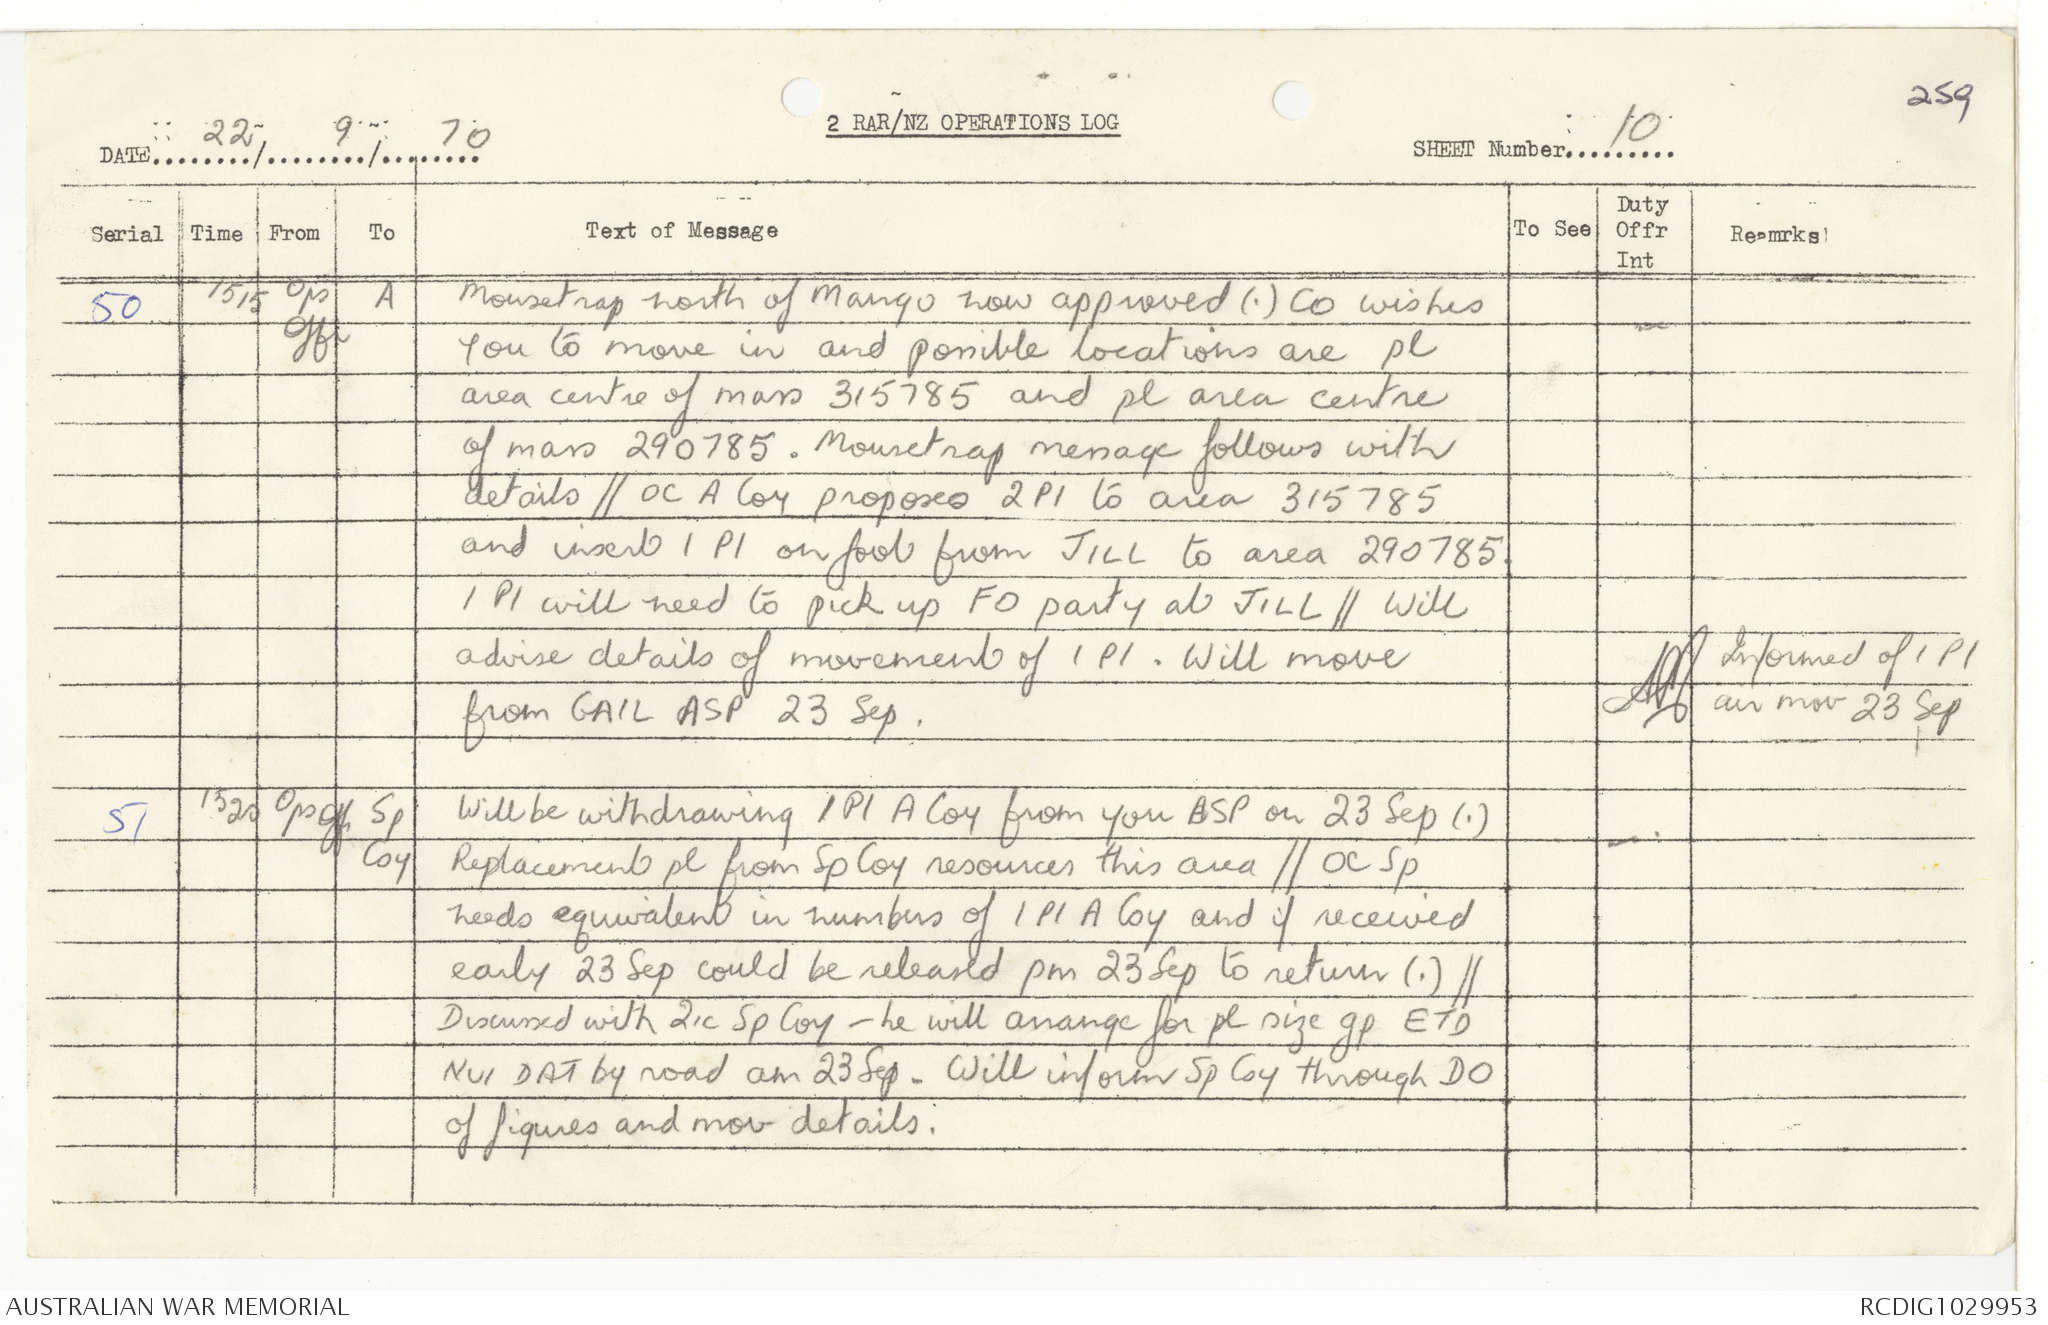 259
2 RAR/NZ OPERATIONS LOG
DATE 22/9/70
SHEET Number 10
Serial Time From To Text of Message To See Duty Offr Int Remrks
50 1515 Ops Offr A Mousetrap north of Mango now approved (.) CO wishes
you to move in and possible locations are pl
area centre of mass 315785 and pl area centre
of mass 290785. Mousetrap message follows with
details // OC A Coy proposes 2 Pl to area 315785
and insert 1 Pl on foot from JILL to area 290785.
1 Pl will need to pick up FO party at JILL // Will
advise details of movement of 1 Pl. Will move Informed of 1 Pl
from GAIL ASP 23 Sep. air mov 23 Sep
51 1520 Ops Offr Sp Will be withdrawing 1 Pl A Coy from you ASP on 23 Sep (.)
Coy Replacement pl from Sp Coy resources this area // OC Sp
needs equivalent in numbers of 1 Pl A Coy and if received
early 23 Sep could be released pm 23 Sep to return (.) //
Discussed with 2ic Sp Coy – he will arrange for pl size gp ETD
NUI DAT by road am 23 Sep. Will inform Sp Coy through DO
of figures and mov details.
AUSTRALIAN WAR MEMORIAL
RCDIG1029953